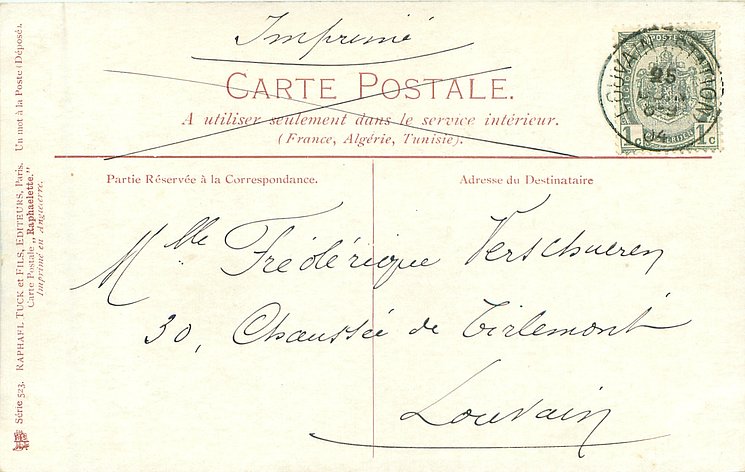 Imprimé
CARTE POSTALE.
A utiliser seulement dans le service intérieur.
(France, Algérie, Tunisie).
Partie Réservée à la Correspondance.
Adresse du Destinataire
Mlle Frédérique Verschueren
30, Chaussée de Tirlemont
Louvain
Série 523. RAPHAEL TUCK et FILS, EDITEURS, Paris. Un mot à la Poste (Déposé).
Carte Postale „Raphaelette."
Imprimé en Angleterre.
LOUVAIN (STATION)
25
04
POSTE
1c 1c